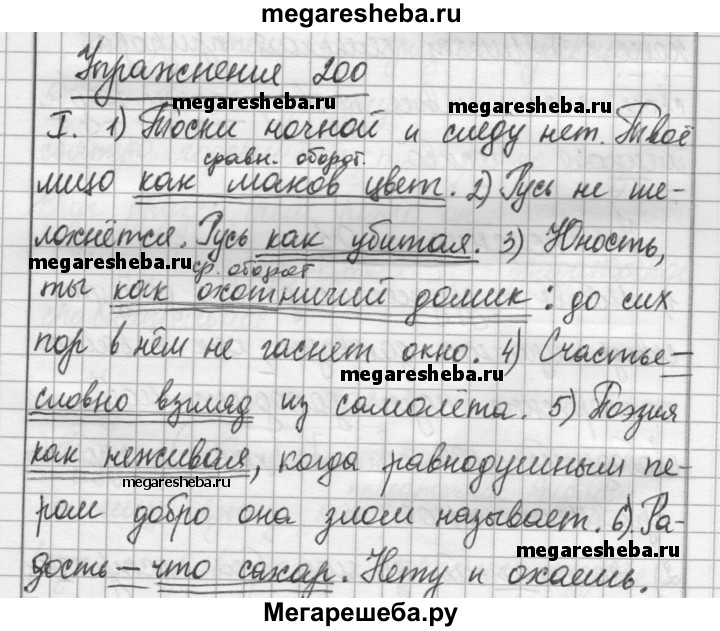 megaresheba.ru
Упражнение 200
megaresheba.ru megaresheba.ru
I. 1) Тоски ночной и следу нет. Твоё
сравн. оборот.
лицо как маков цвет. 2) Русь не ше-
лохнётся. Русь как убитая. 3) Юность,
megaresheba.ru
ср. оборот
ты как охотничий домик: до сих
пор в нём не гаснет окно. 4) Счастье –
megaresheba.ru
словно взгляд из самолёта. 5) Поэзия
как неживая, когда равнодушным пе-
megaresheba.ru
ром добро она злом называет. 6) Ра-
megaresheba.ru
дость – что сахар. Нету и охаешь.
Мегарешеба.ру